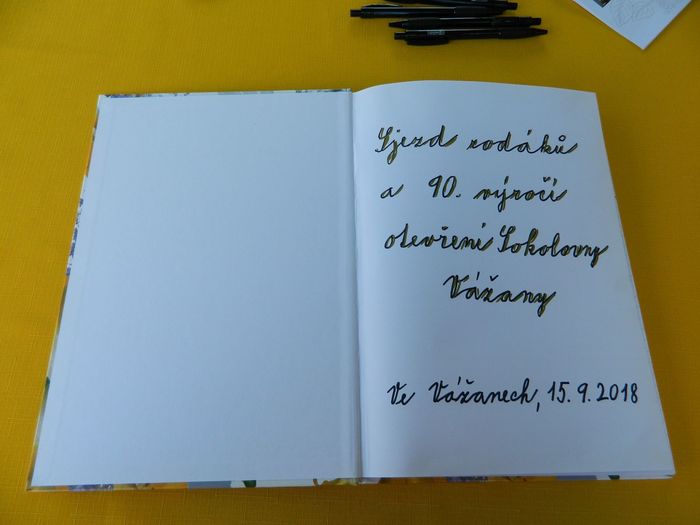 Sjezd rodáků
a 90. výročí
otevření Sokolovny
Vážany
Ve Vážanech, 15.9.2018